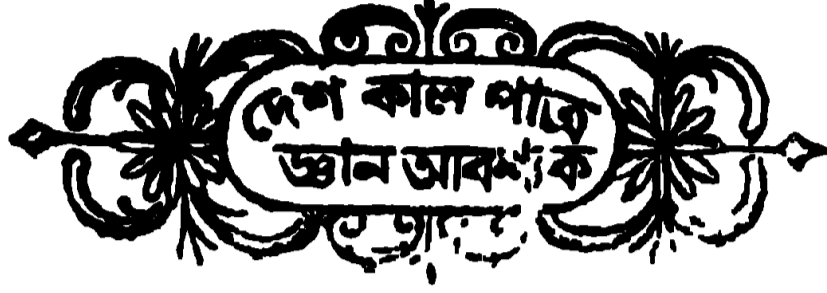 দেশ কাল পাত্র
জ্ঞান আবশ্যক